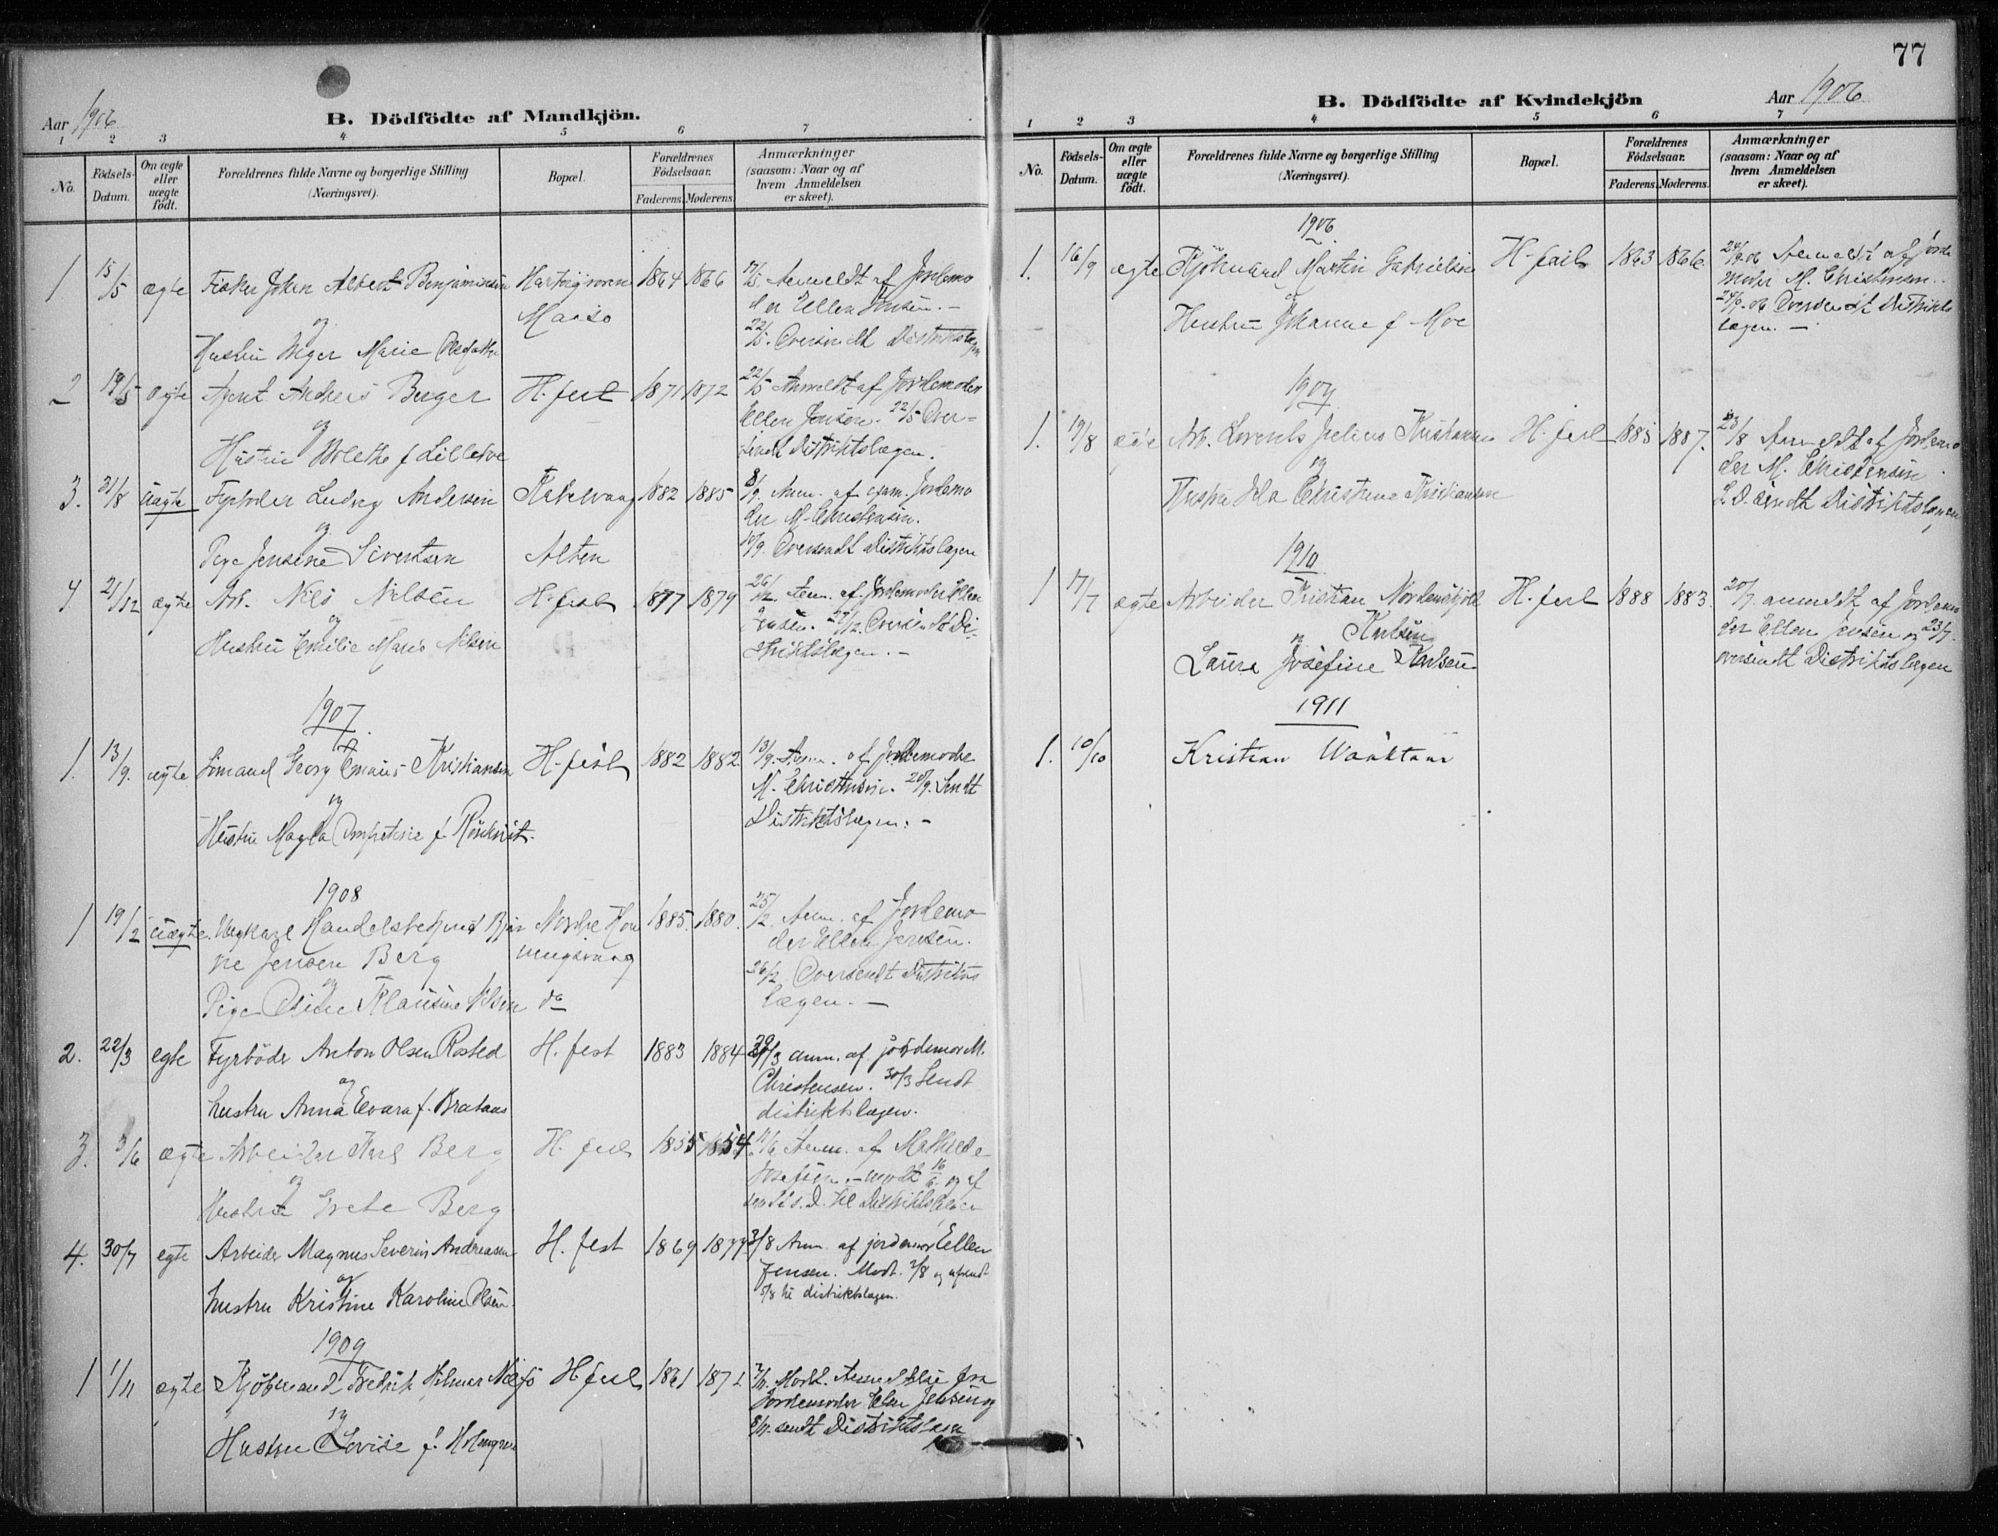 77
Aar 1906
B. Dödfödte af Mandkjön.
1 2 3 4 5 6 7
No.
Födsels-Datum.
Om ægte eller uægte födt.
Forældrenes fulde Navne og borgerlige Stilling
(Næringsvei).
Bopæl.
Forældrenes Födselsaar.
Faderens. Moderens.
Anmærkninger
(saasom: Naar og af
hvem Anmeldelsen
er skeet).
1 15/5 ægte Fisker Johan Albert Benjaminsen 1864 1866 17/5 Anmeldt af Jordemo
og Maasö der Ellen Jensen. -
22/5. Oversendt Distriktslægen
Hustru Inger Marie
2 19/5 ægte Agent Anders Berger H.fest 1871 1872 22/5 Anmeldt af Jordemoder
og Ellen Jensen. 22/5 Over-
sendt Distriktslægen.
Hustru Bolethe f Lilleeve
3. 31/8 uægte Fyrböder Ludvig Andersen 1882 1885 8/9. Anm. af exam. Jordemo
og der M. Christensen.
Pige Jensine Sivertsen Alten 10/9. Oversendt Distriktslægen
4 21/12 ægte Arb. Nils Nilsen H.fest 1877 1879 26/12. Anm. af Jordemoder Ellen
og Jensen. Oversendt Di-
Hustru Emilie Marie Nilsen striktslægen. -
1907
1. 13/9. ægte Sömand Georg Kristiansen H.fest 1882 1882. 13/9. Anm. af Jordemoder
og M. Christensen. 20/9. Sendt
Distriktslægen. -
Hustru Magda f
1908
1 19/2 uægte. Ungkarl Handelsbetjent Bjar Nordre Hon 1885. 1880. 25/2. Anm. af Jordemo
ne Jensen Berg ningsvaag der Ellen Jensen.
og 26/2. Oversendt Distrikts
Pige Klausine Nilsen do lægen. -
2. 22/3 egte Fyrböder Anton Olsen Rosted H. fest 1883 1884 anm. af jordemor M.
og Christensen. 30/3 Sendt
hustru Anna Evara f. distriktslægen.
3. 3/6 ægte Arbeider Karl Berg H. fest 1855 1854 Anm. af Mathilde
og Josefsen. - modt 16/6. og af
Hustru Grete Berg sendt s. D. til Distriktslægen
4. 30/7 egte Arbeider Magnus Severin Andreasen H. fest 1869 3/8 Anm. af jordemor Ellen
og Jensen. Modt. og afsendt
hustru Kristine Karoline Olsen. 5/8 til distriktslægen.
1909
1 1/11 ægte Kjöbmand Fredrik Hilmar H.fest 1861 1871 Modt. Anmeldelse fra
og Jordemoder Ellen Jensen og
Hustru Lovise f. Holmgren sendt Distriktslægen
B. Dödfödte af Kvindekjön
Aar 1906
1 2 3 4 5 6 7
No.
Födsels-Datum.
Om ægte eller uægte födt.
Forældrenes fulde Navne og borgerlige Stilling
(Næringsvei).
Bopæl.
Forældrenes Födselsaar.
Faderens. Moderens.
Anmærkninger
(saasom: Naar og af
hvem Anmeldelsen
er skeet).
1906
1. 16/9 ægte Kjöbmand Martin Gabrielsen H.fest 1863 1866 24/9.06 Anmeldt af Jorde
og moder M. Christensen.
Hustru Johanne f Moe 24/9.06 Oversendt Distrikts
lægen. -
1909
1. 19/8 ægte Arb. Lorents Julius Kristiansen H.fest 1885 1887. 23/8 Anmeldt af Jordemo
og der M. Christensen.
Hustru Ida Christine Kristiansen S. D. sendt Distriktslægen
1910
1 17/7 ægte Arbeider Kristian Nordenskjold H.fest 1888 1883. 20/7. anmeldt af Jordemo
Karlsen der Ellen Jensen og 23/7.
og
Laura Josefine Karlsen oversendt Distriktslægen
1911
1. 10/10 Kristian Waaktaar